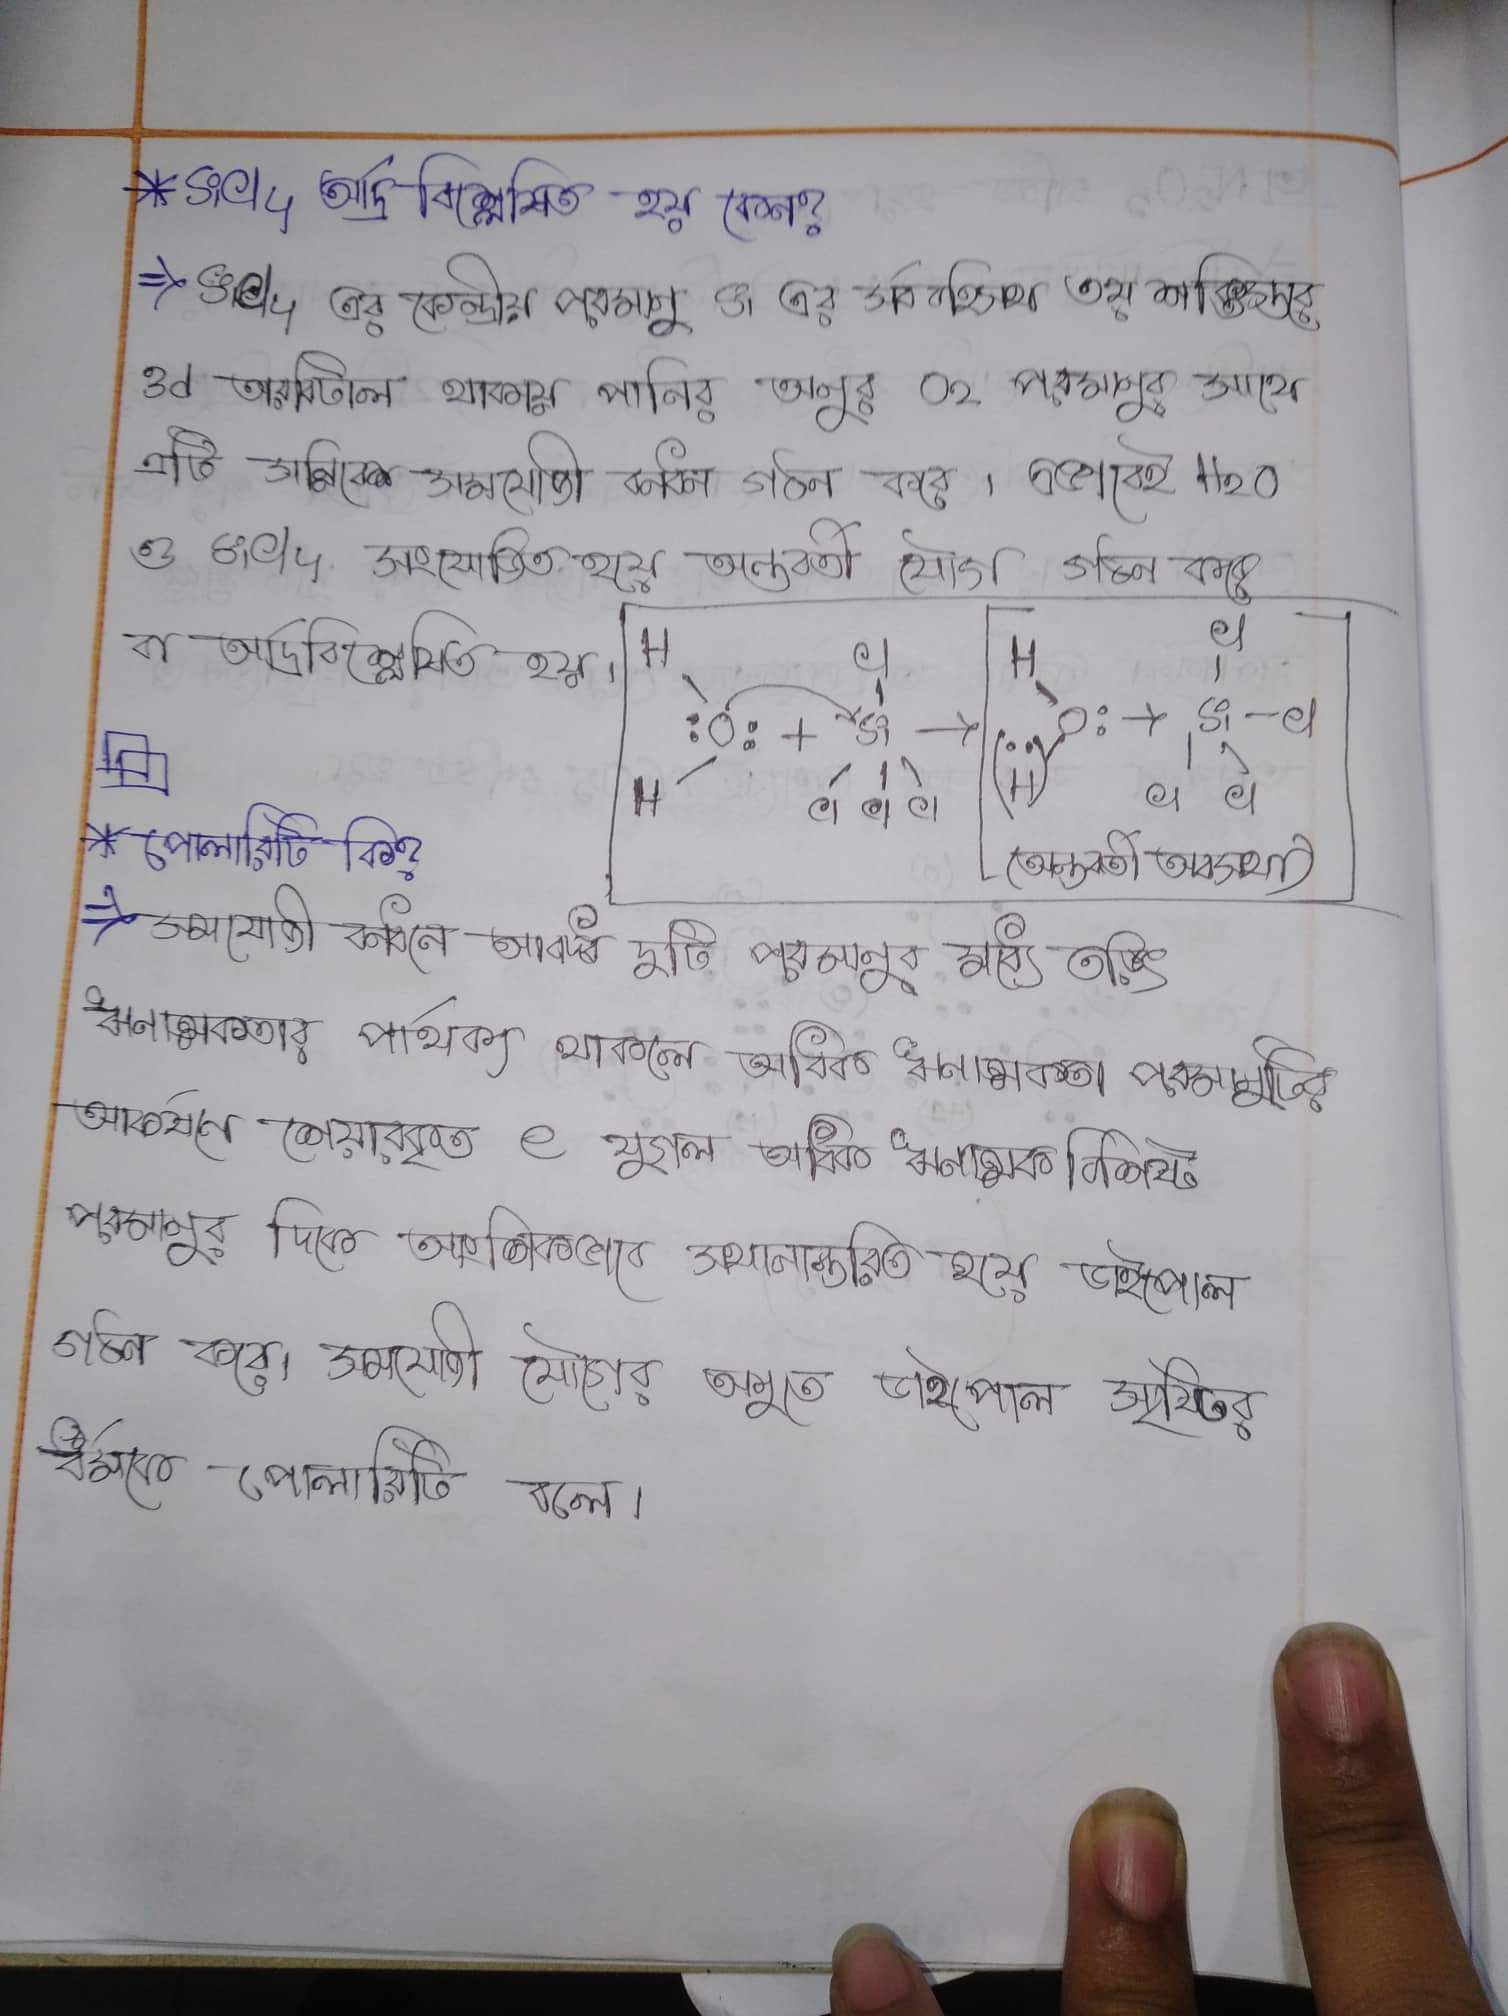 * SiCl4 আর্দ্র বিশ্লেষিত হয় কেন?
⇒ SiCl4 এর কেন্দ্রীয় পরমাণু Si এর সর্ববহিঃস্থ ৩য় শক্তিস্তরে
3d অরবিটাল থাকায় পানির অনুর O2 পরমানুর সাথে
এটি সন্নিবেশ সমযোজী বন্ধন গঠন করে। এভাবেই H2O
ও SiCl4 সংযোজিত হয়ে অন্তবর্তী যৌগ গঠন করে
বা আর্দ্রবিশ্লেষিত হয়।
H Cl H Cl
:O: + Si → O: → Si - Cl
H Cl Cl Cl (H) Cl Cl
(অন্তবর্তী অবস্থা)
* পোলারিটি কি?
⇒ সমযোজী বন্ধনে আবদ্ধ দুটি পরমানুর মধ্যে তড়িৎ
ঋনাত্মকতার পার্থক্য থাকলে অধিক ঋনাত্মকতা পরমানুটির
আকর্ষণে শেয়ারকৃত e যুগল অধিক ঋনাত্মক বিশিষ্ট
পরমানুর দিকে আংশিকভাবে স্থানান্তরিত হয়ে ডাইপোল
গঠন করে। সমযোজী যৌগের অনুতে ডাইপোল সৃষ্টির
ধর্মকে পোলারিটি বলে।